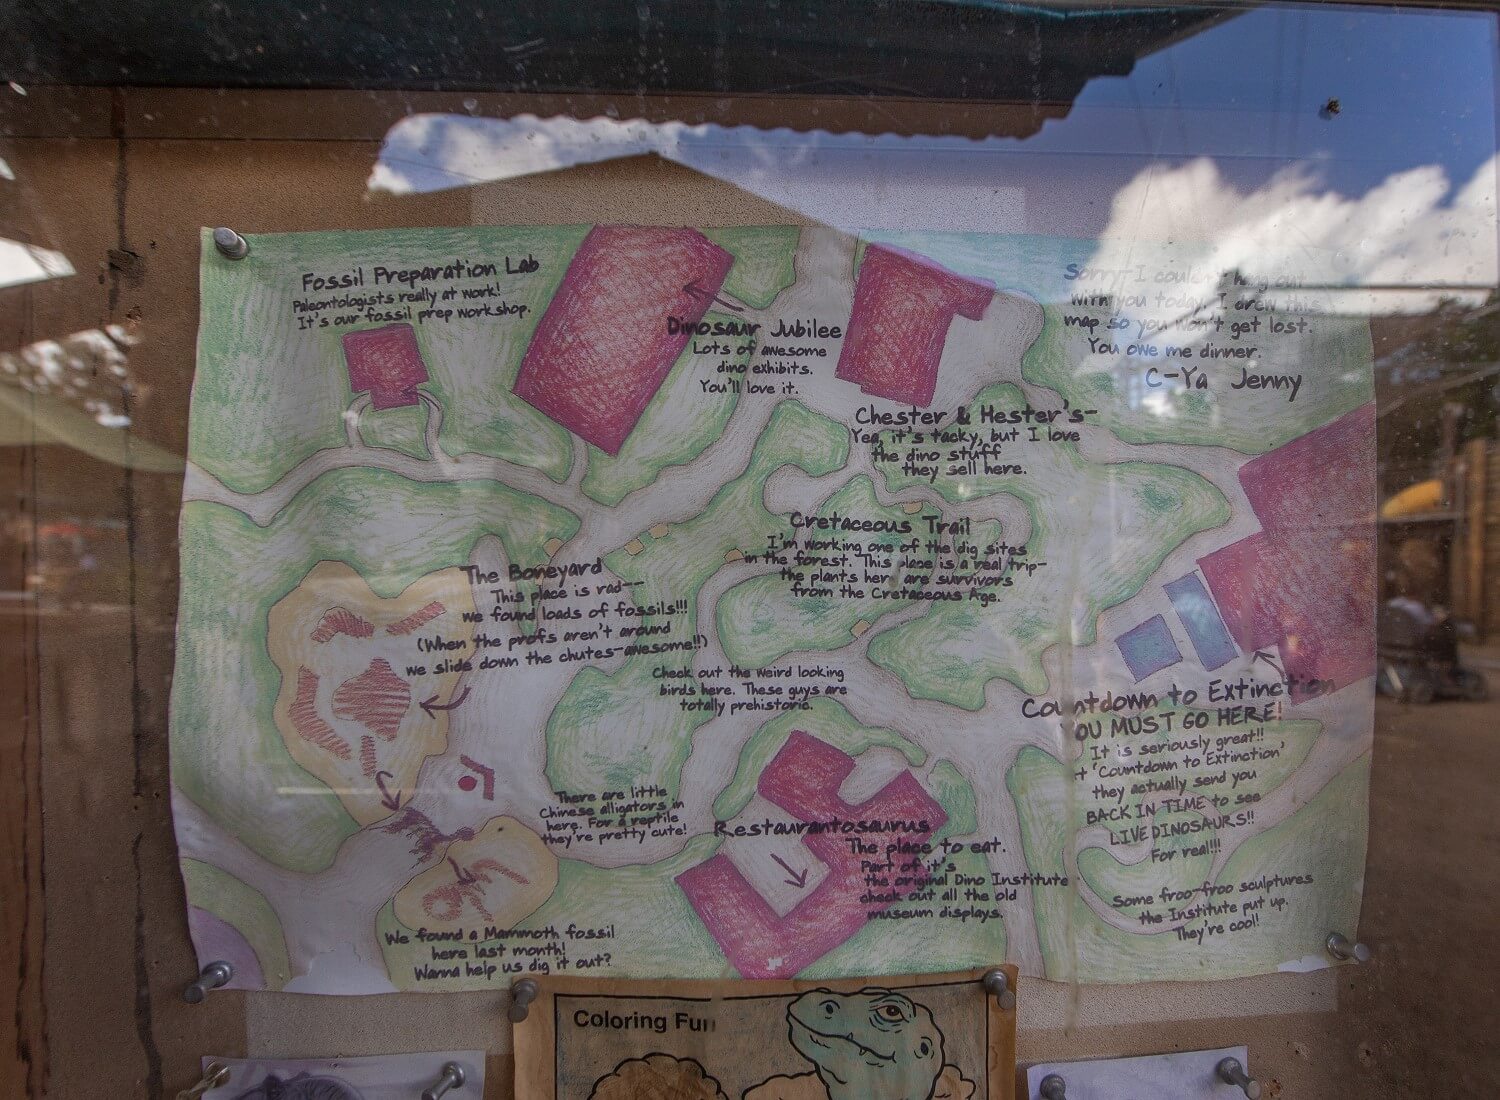 Fossil Preparation Lab
Paleontologists really at work!
It's our fossil prep workshop.
Dinosaur Jubilee
Lots of awesome
dino exhibits.
You'll love it.
Sorry-I couldn't hang out
with you today. I drew this
map so you won't get lost.
You owe me dinner.
C-Ya Jenny
Chester & Hester's-
Yea, it's tacky, but I love
the dino stuff
they sell here.
Cretaceous Trail
I'm working one of the dig sites
in the forest. This place is a real trip-
the plants here are survivors
from the Cretaceous Age.
The Boneyard
This place is rad--
we found loads of fossils!!!
(When the profs aren't around
we slide down the chutes-awesome!!)
Check out the weird looking
birds here. These guys are
totally prehistoric.
Countdown to Extinction
OU MUST GO HERE!
It is seriously great!!
t 'Countdown to Extinction'
they actually send you
BACK IN TIME to see
LIVE DINOSAURS!!
For real!!!
There are little
Chinese alligators in
here. For a reptile
they're pretty cute!
Restaurantosaurus
The place to eat.
Part of it's
the original Dino Institute
check out all the old
museum displays.
Some froo-froo sculptures
the Institute put up.
They're cool!
We found a Mammoth fossil
here last month!
Wanna help us dig it out?
Coloring Fun